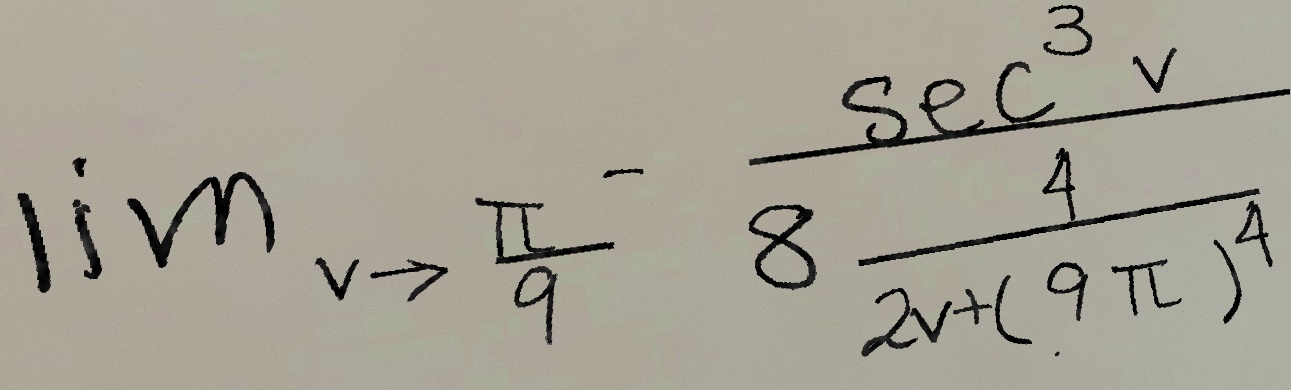 \lim_{v \to \frac{\pi}{9}^{-}} \frac{\sec^{3} v}{8 \frac{4}{2v + (9\pi)^{4}}}